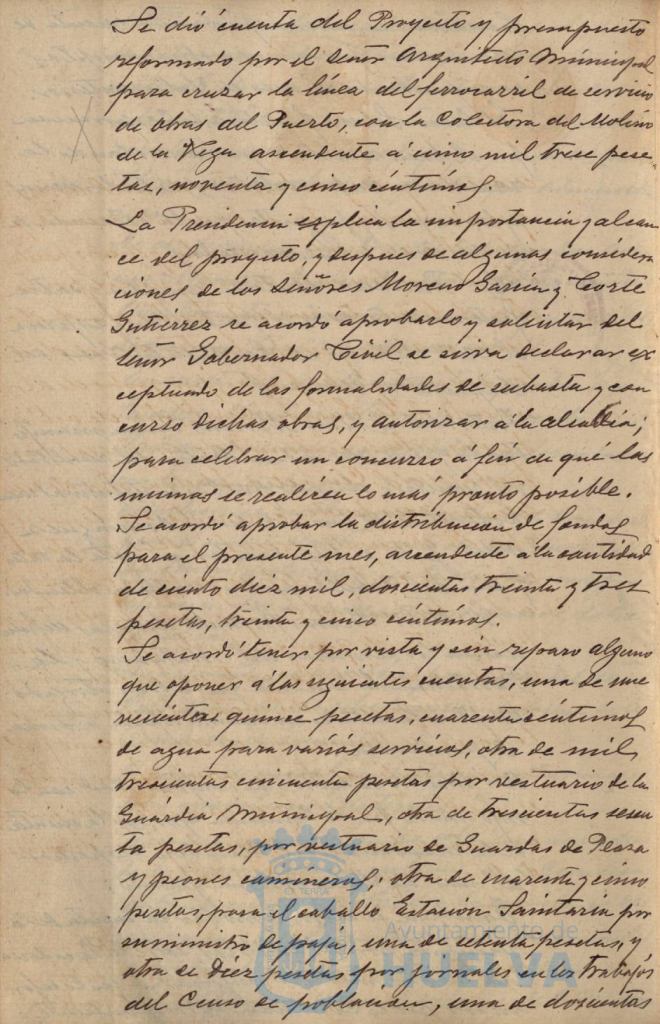 Se dió cuenta del Proyecto y presupuesto
reformado por el señor Arquitecto Municipal
para cruzar la línea del ferrocarril de servicio
de obras del Puerto, con la Colectora del Molino
de la Vega ascendente á cinco mil trece pese-
tas, noventa y cinco céntimos.
La Presidencia explica la importancia y alcan
ce del proyecto, y despues de algunas considera
ciones de los señores Moreno García y Corte
Gutiérrez se acordó aprobarlo y solicitar del
señor Gobernador Civil se sirva declarar ex
ceptuado de las formalidades de subasta y con
curso dichas obras, y autorizar á la alcaldía;
para celebrar un concurso á fin de qué las
mismas se realicen lo más pronto posible.
Se acordó aprobar la distribución de fondos
para el presente mes, ascendente á la cantidad
de ciento diez mil, doscientas treinta y tres
pesetas, treinta y cinco céntimos.
Se acordó tener por vista y sin reparo alguno
que oponer á las siguientes cuentas, una de nue
vecientas quince pesetas, cuarenta céntimos
de agua para varios servicios, otra de mil
trescientas cincuenta pesetas por vestuario de la
Guardia Municipal, otra de trescientas sesen
ta pesetas, por vestuario de Guardas de Plaza
y peones camineros; otra de cuarenta y cinco
pesetas, para el caballo Estación Sanitaria por
suministro de paja, una de setenta pesetas, y
otra de Diez pesetas por jornales en los trabajos
del Censo de población, una de doscientas
Ayuntamiento de
HUELVA